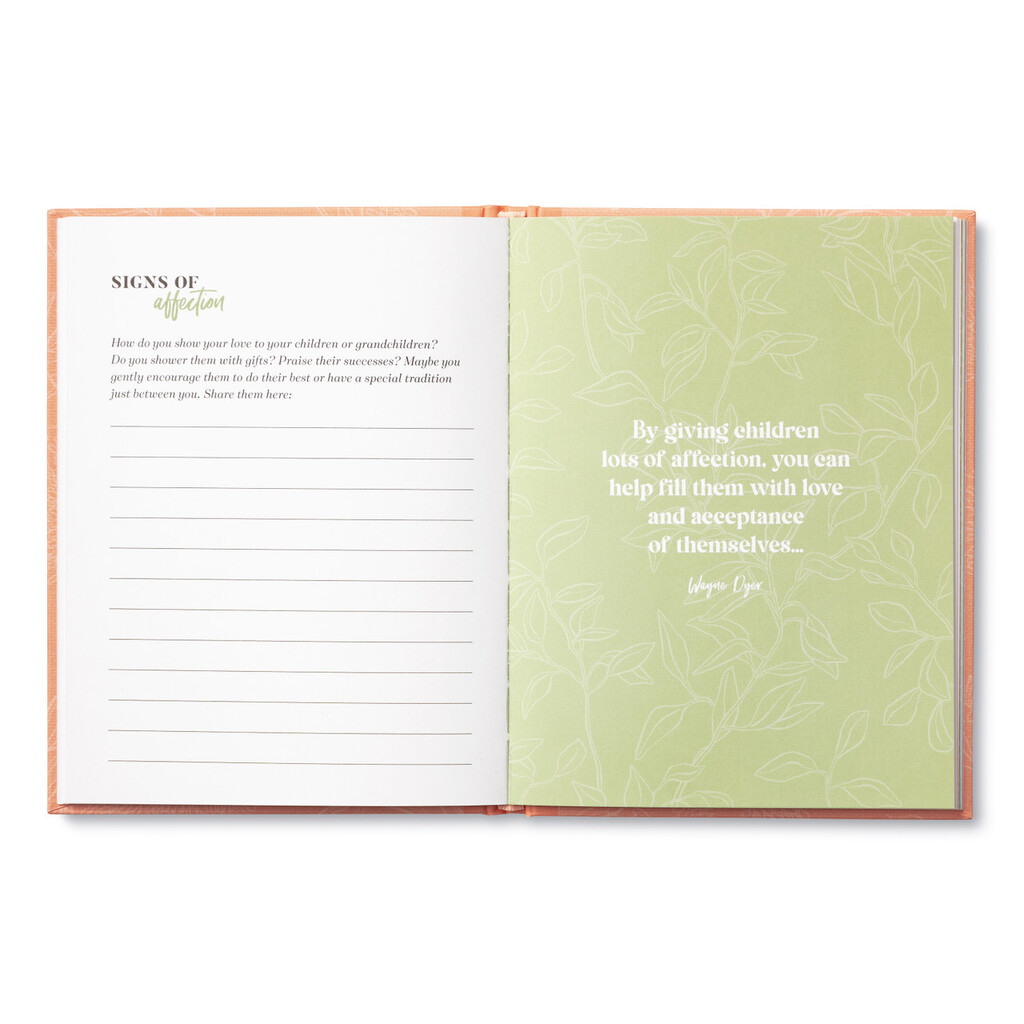 SIGNS OF
affection
How do you show your love to your children or grandchildren?
Do you shower them with gifts? Praise their successes? Maybe you
gently encourage them to do their best or have a special tradition
just between you. Share them here:
By giving children
lots of affection, you can
help fill them with love
and acceptance
of themselves...
Wayne Dyer